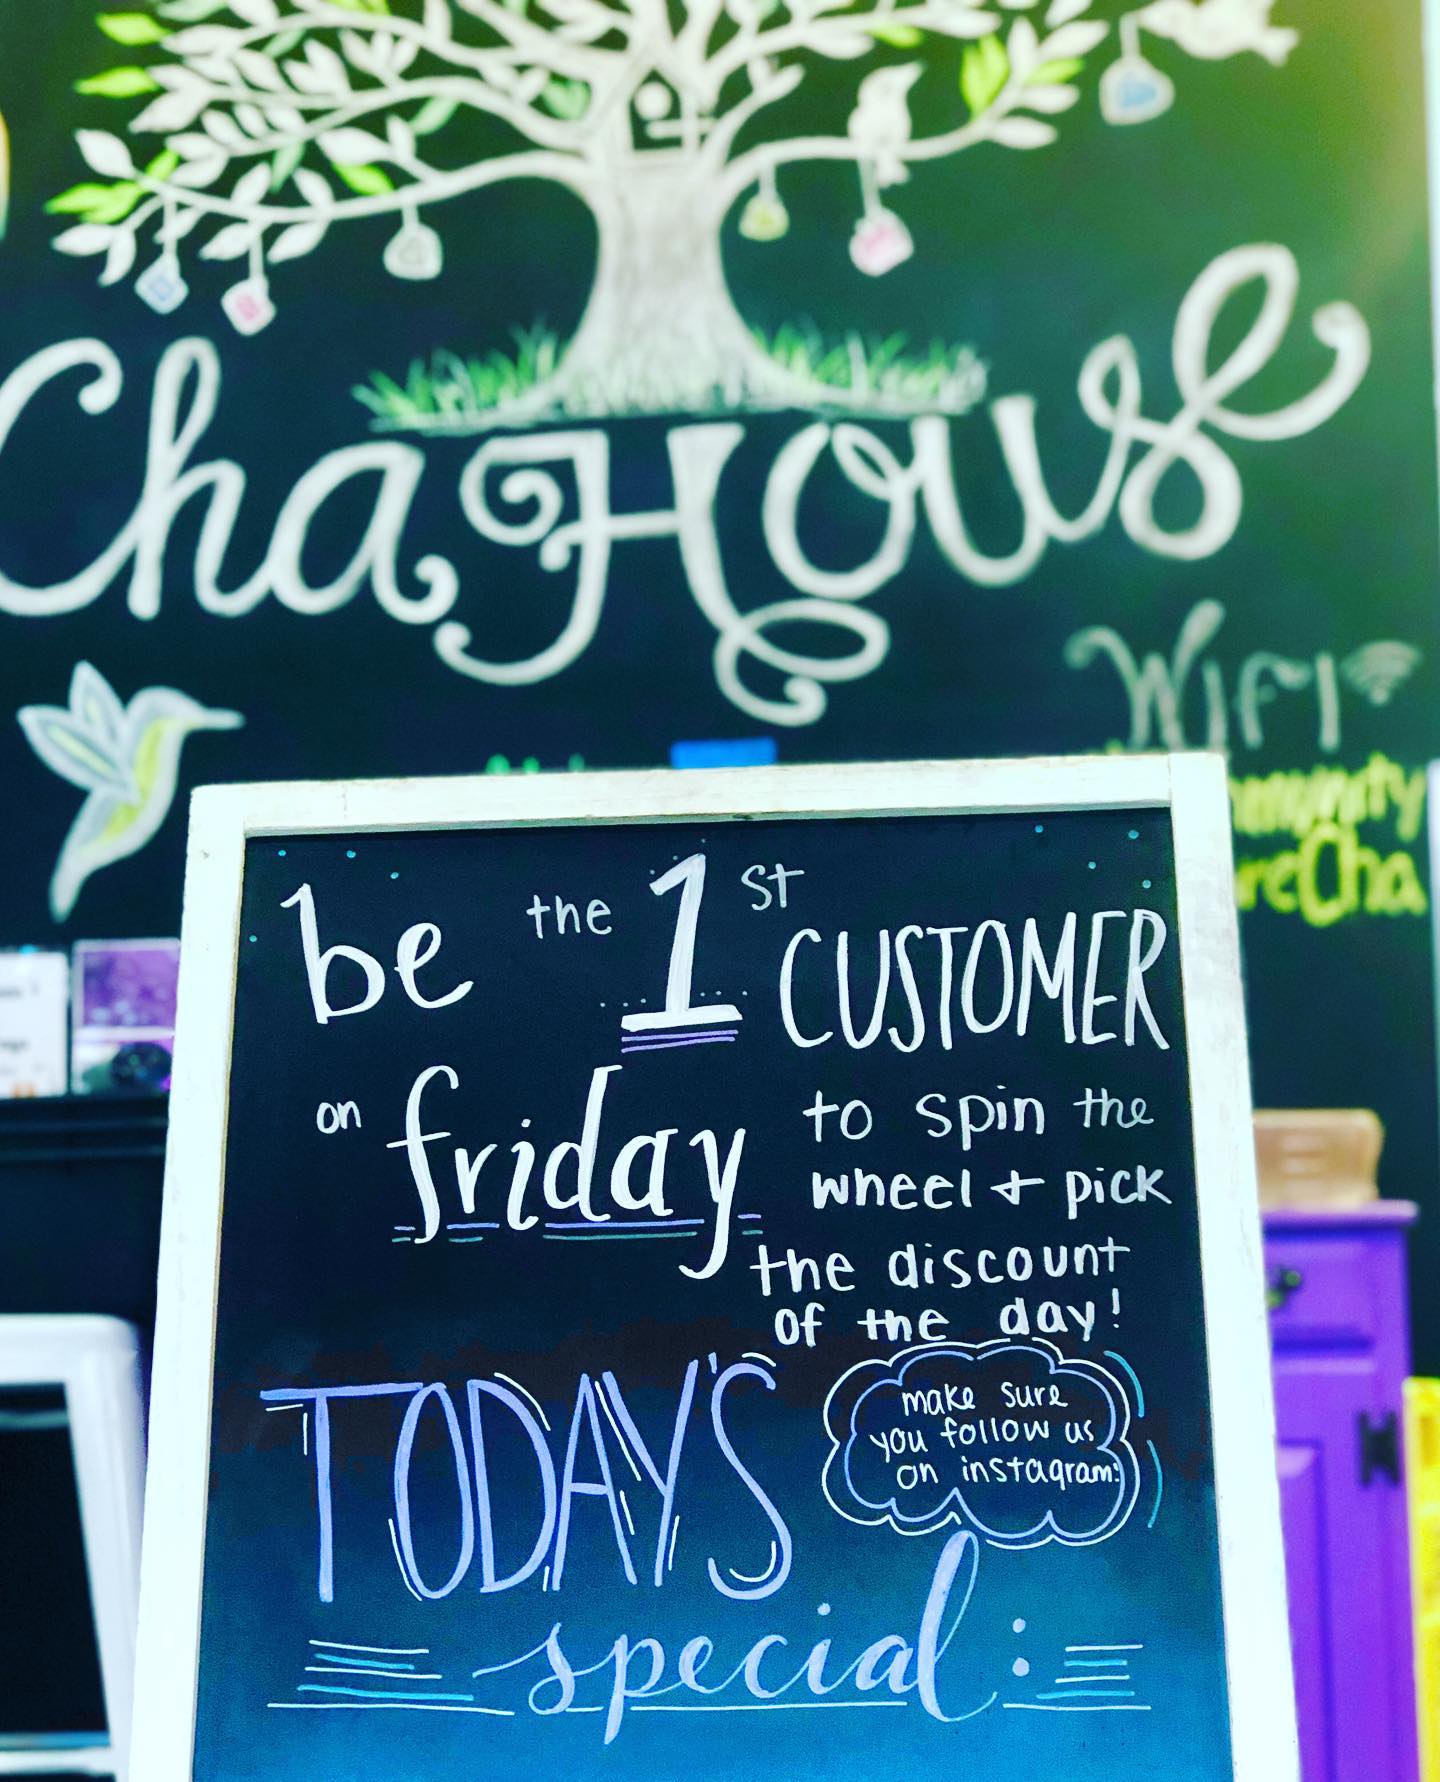 ChaHouse
WiFi
be the 1st CUSTOMER
on friday to spin the
wheel + pick
the discount
of the day!
make sure
you follow us
on instagram:
TODAY'S
special: